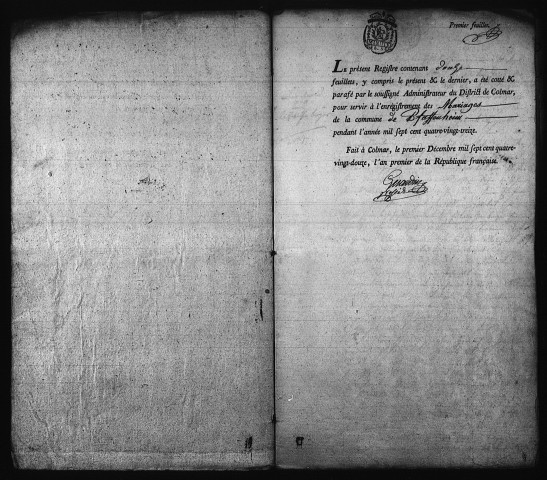 Premier feuillet
LE présent Registre contenant douze
feuillets, y compris le présent & le dernier, a été cotté &
parafé par le soussigné Administrateur du District de Colmar,
pour servir à l'enrégistrement des Mariages
de la commune de Pfaffenheim
pendant l'année mil sept cent quatre-vingt-treize.
Fait à Colmar, le premier Décembre mil sept cent quatre-
vingt-douze, l'an premier de la République française.